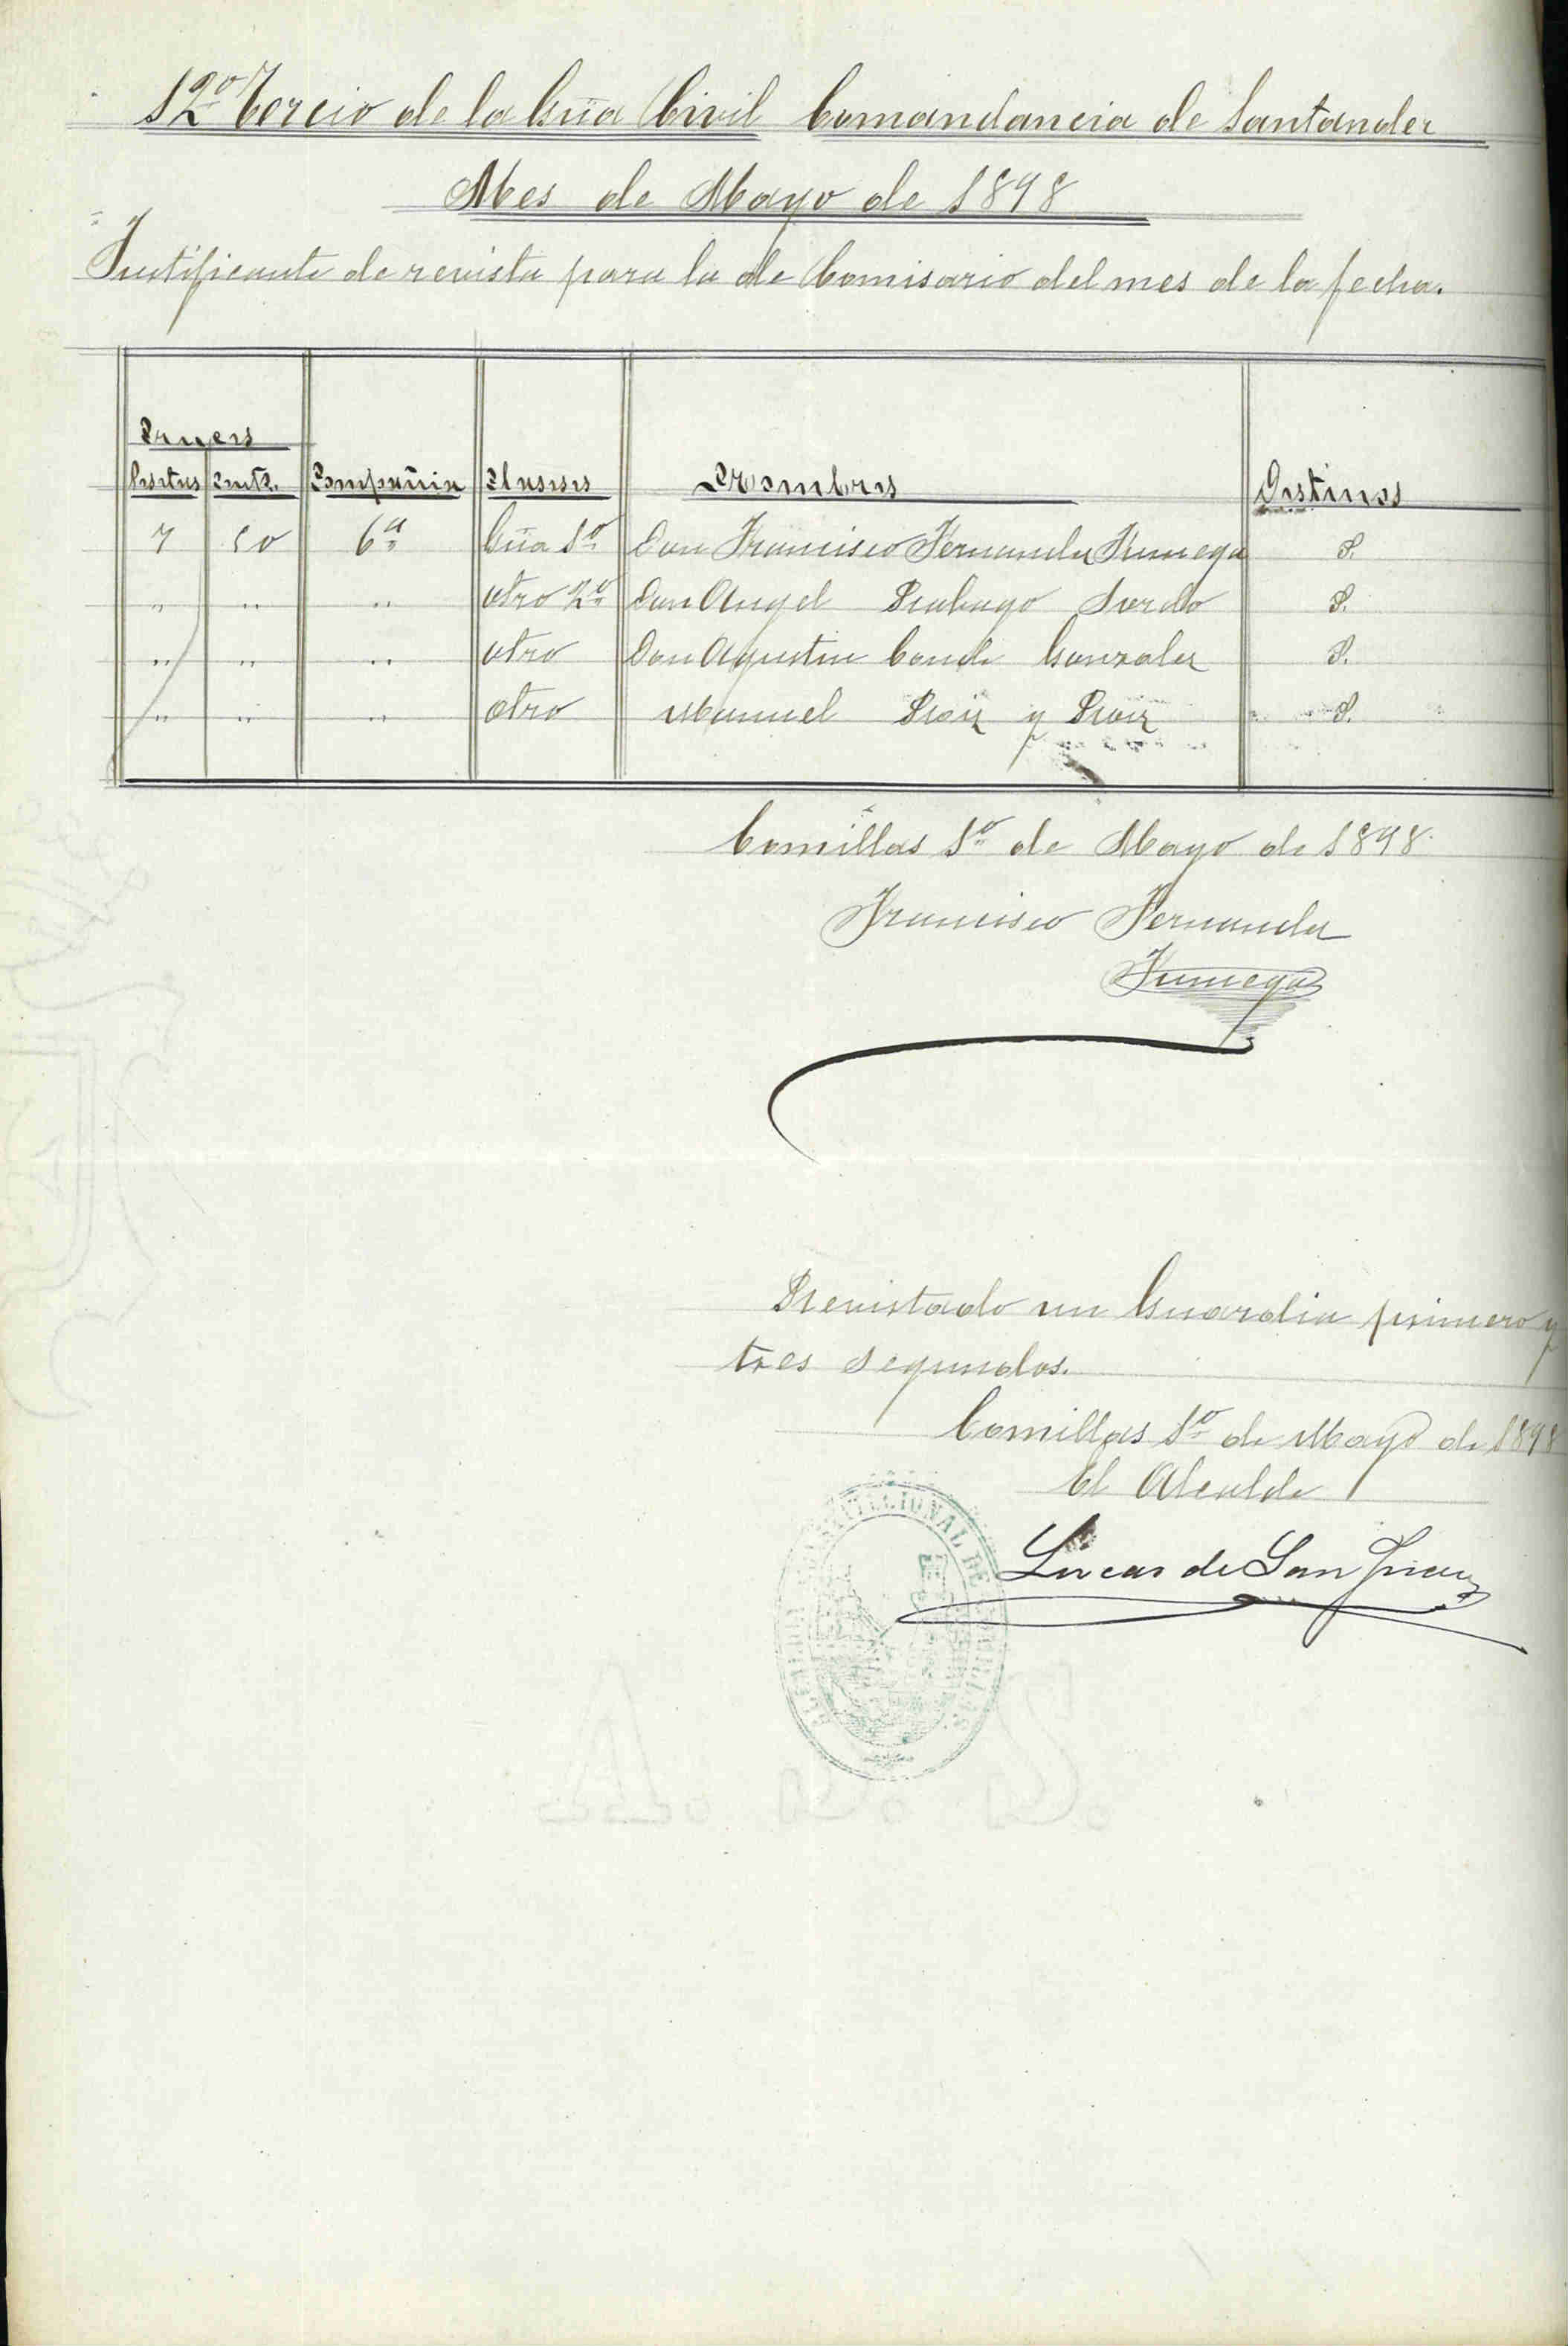 12º Tercio de la Gũa Civil Comandancia de Santander
Mes de Mayo de 1898
Justificante de revista para la de Comisario del mes de la fecha.
Pruers
Pesetas Cents. Compañia Clases Nombres Destinos
7 50 6ª Gũa 1º Don Francisco Fernandez Fumega P.
" " " otro 2º Don Angel Rabago Sordo P.
" " " otro Don Agustin Conde Gonzalez P.
" " " otro Manuel Ruiz y Ruiz P.
Comillas 1º de Mayo de 1898
Francisco Fernandez
Fumega
Revistado un Guardia primero y
tres segundos.
Comillas 1º de Mayo de 1898
El Alcalde
Lucas de San Juan
CONSTITUCIONAL DE COMILLAS